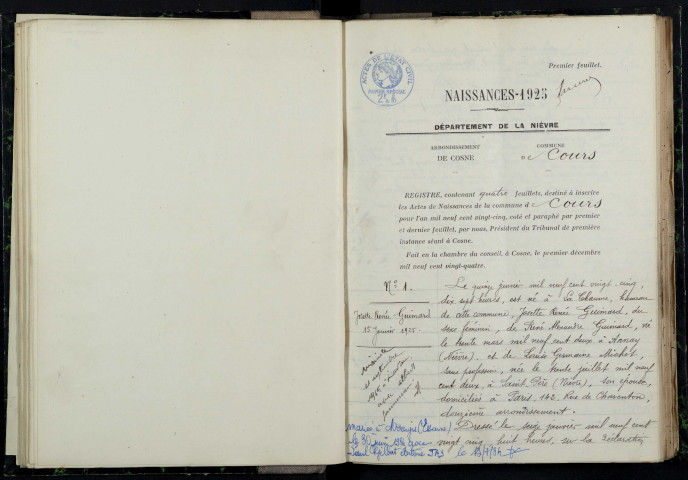 Premier feuillet.
ACTES DE L'ÉTAT CIVIL
PAPIER SPÉCIAL
NAISSANCES-1925
DÉPARTEMENT DE LA NIÈVRE
ARRONDISSEMENT
DE COSNE
COMMUNE
D e Cours
REGISTRE, contenant quatre feuillets, destiné à inscrire
les Actes de Naissances de la commune d e Cours
pour l'an mil neuf cent vingt-cinq, coté et paraphé par premier
et dernier feuillet, par nous, Président du Tribunal de première
instance séant à Cosne.
Fait en la chambre du conseil, à Cosne, le premier décembre
mil neuf cent vingt-quatre.
N° 1.
Josette Renée Guimard
15 Janvier 1925
Le quinze janvier mil neuf cent vingt-cinq,
dix sept heures, est née à La Chaume, hameau
de cette commune, Josette Renée Guimard, du
sexe féminin, de René Alexandre Guimard, né
le trente mars mil neuf cent deux à Annay
(Nièvre), et de Louise Germaine Michot,
sans profession, née le trente juillet mil neuf
cent deux, à Saint-Père (Nièvre), son épouse,
domiciliés à Paris, 142, Rue de Charenton,
douzième arrondissement.
Dressé le seize janvier mil neuf cent
vingt cinq, huit heures, sur la déclaration
septembre
mariée à (Essonne)
le 30 juin 1984 avec
Paul Antoine
le 13/9/84